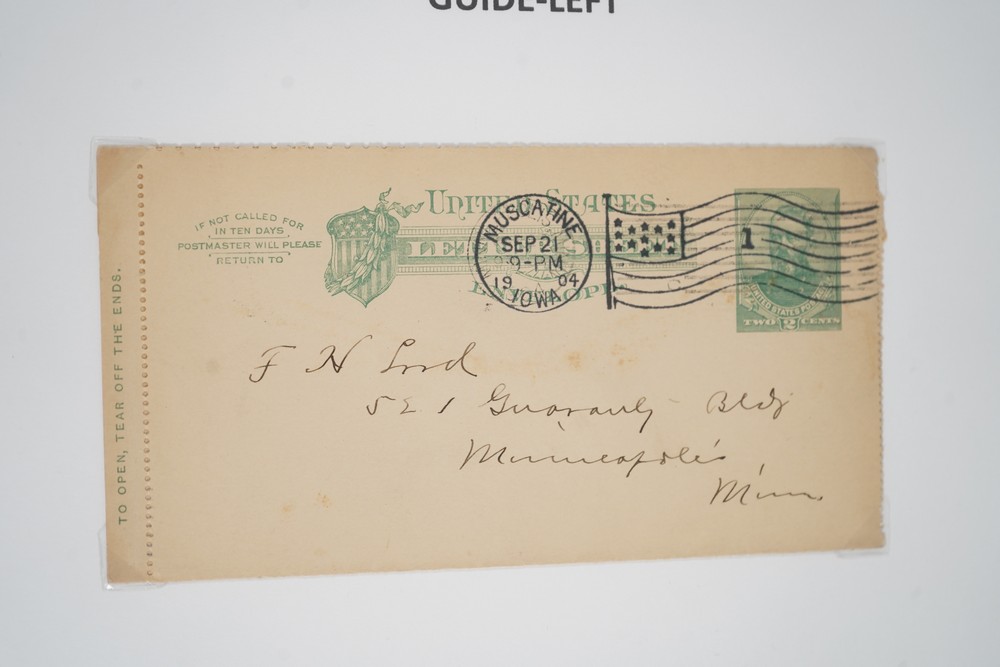 GUIDE-LEFT
UNITED STATES
LETTER SHEET
ENVELOPE
IF NOT CALLED FOR
IN TEN DAYS
POSTMASTER WILL PLEASE
RETURN TO
MUSCATINE
SEP 21
9-PM
19 04
IOWA
1
UNITED STATES POSTAGE
TWO 2 CENTS
TO OPEN, TEAR OFF THE ENDS.
F H Lord
521 Guaranty Bldg
Minneapolis
Minn